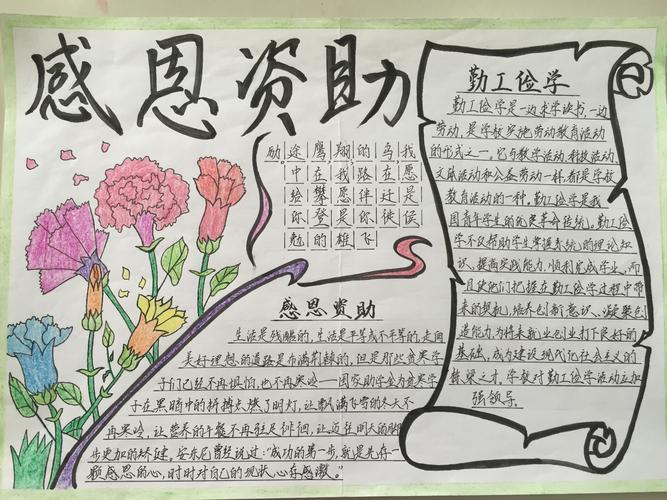 感恩资助
我愿是候
鸟在迁徙
的路伴你飞
翔我愿是雄
鹰在攀登的
途中给你勉
励
感恩资助
生活是残酷的,生活是平等或不平等的,走向
美好理想的道路是布满荆棘的,但是那些贫寒学
子们已经不再惧怕,也不再寒冷——国家助学金为贫寒学
子在黑暗中的拼搏点燃了明灯,让飘满飞雪的冬天不
再寒冷,让营养的午餐不再徘徊,让迈往明天的脚
步更加的矫健,安东尼曾经说过:“成功的第一步,就是先存一
颗感恩的心,时时对自己的现状心存感激。”
勤工俭学
勤工俭学是一边求学读书,一边
劳动,是学校实施劳动教育活动
的形式之一。它与教学活动、科技活动、
文娱活动和公益劳动一样,都是学校
教育活动的一种。勤工俭学是我
国青年学生的优良革命传统。勤工俭
学不仅帮助学生掌握系统的理论知
识、提高实践能力、顺利完成学业,而
且使他们把握在勤工俭学过程中带
来的契机,培养创新意识、凝聚创
造能力,为将来就业创业打下良好的
基础,成为建设现代化社会主义的
栋梁之才。学校对勤工俭学活动应加
强领导。